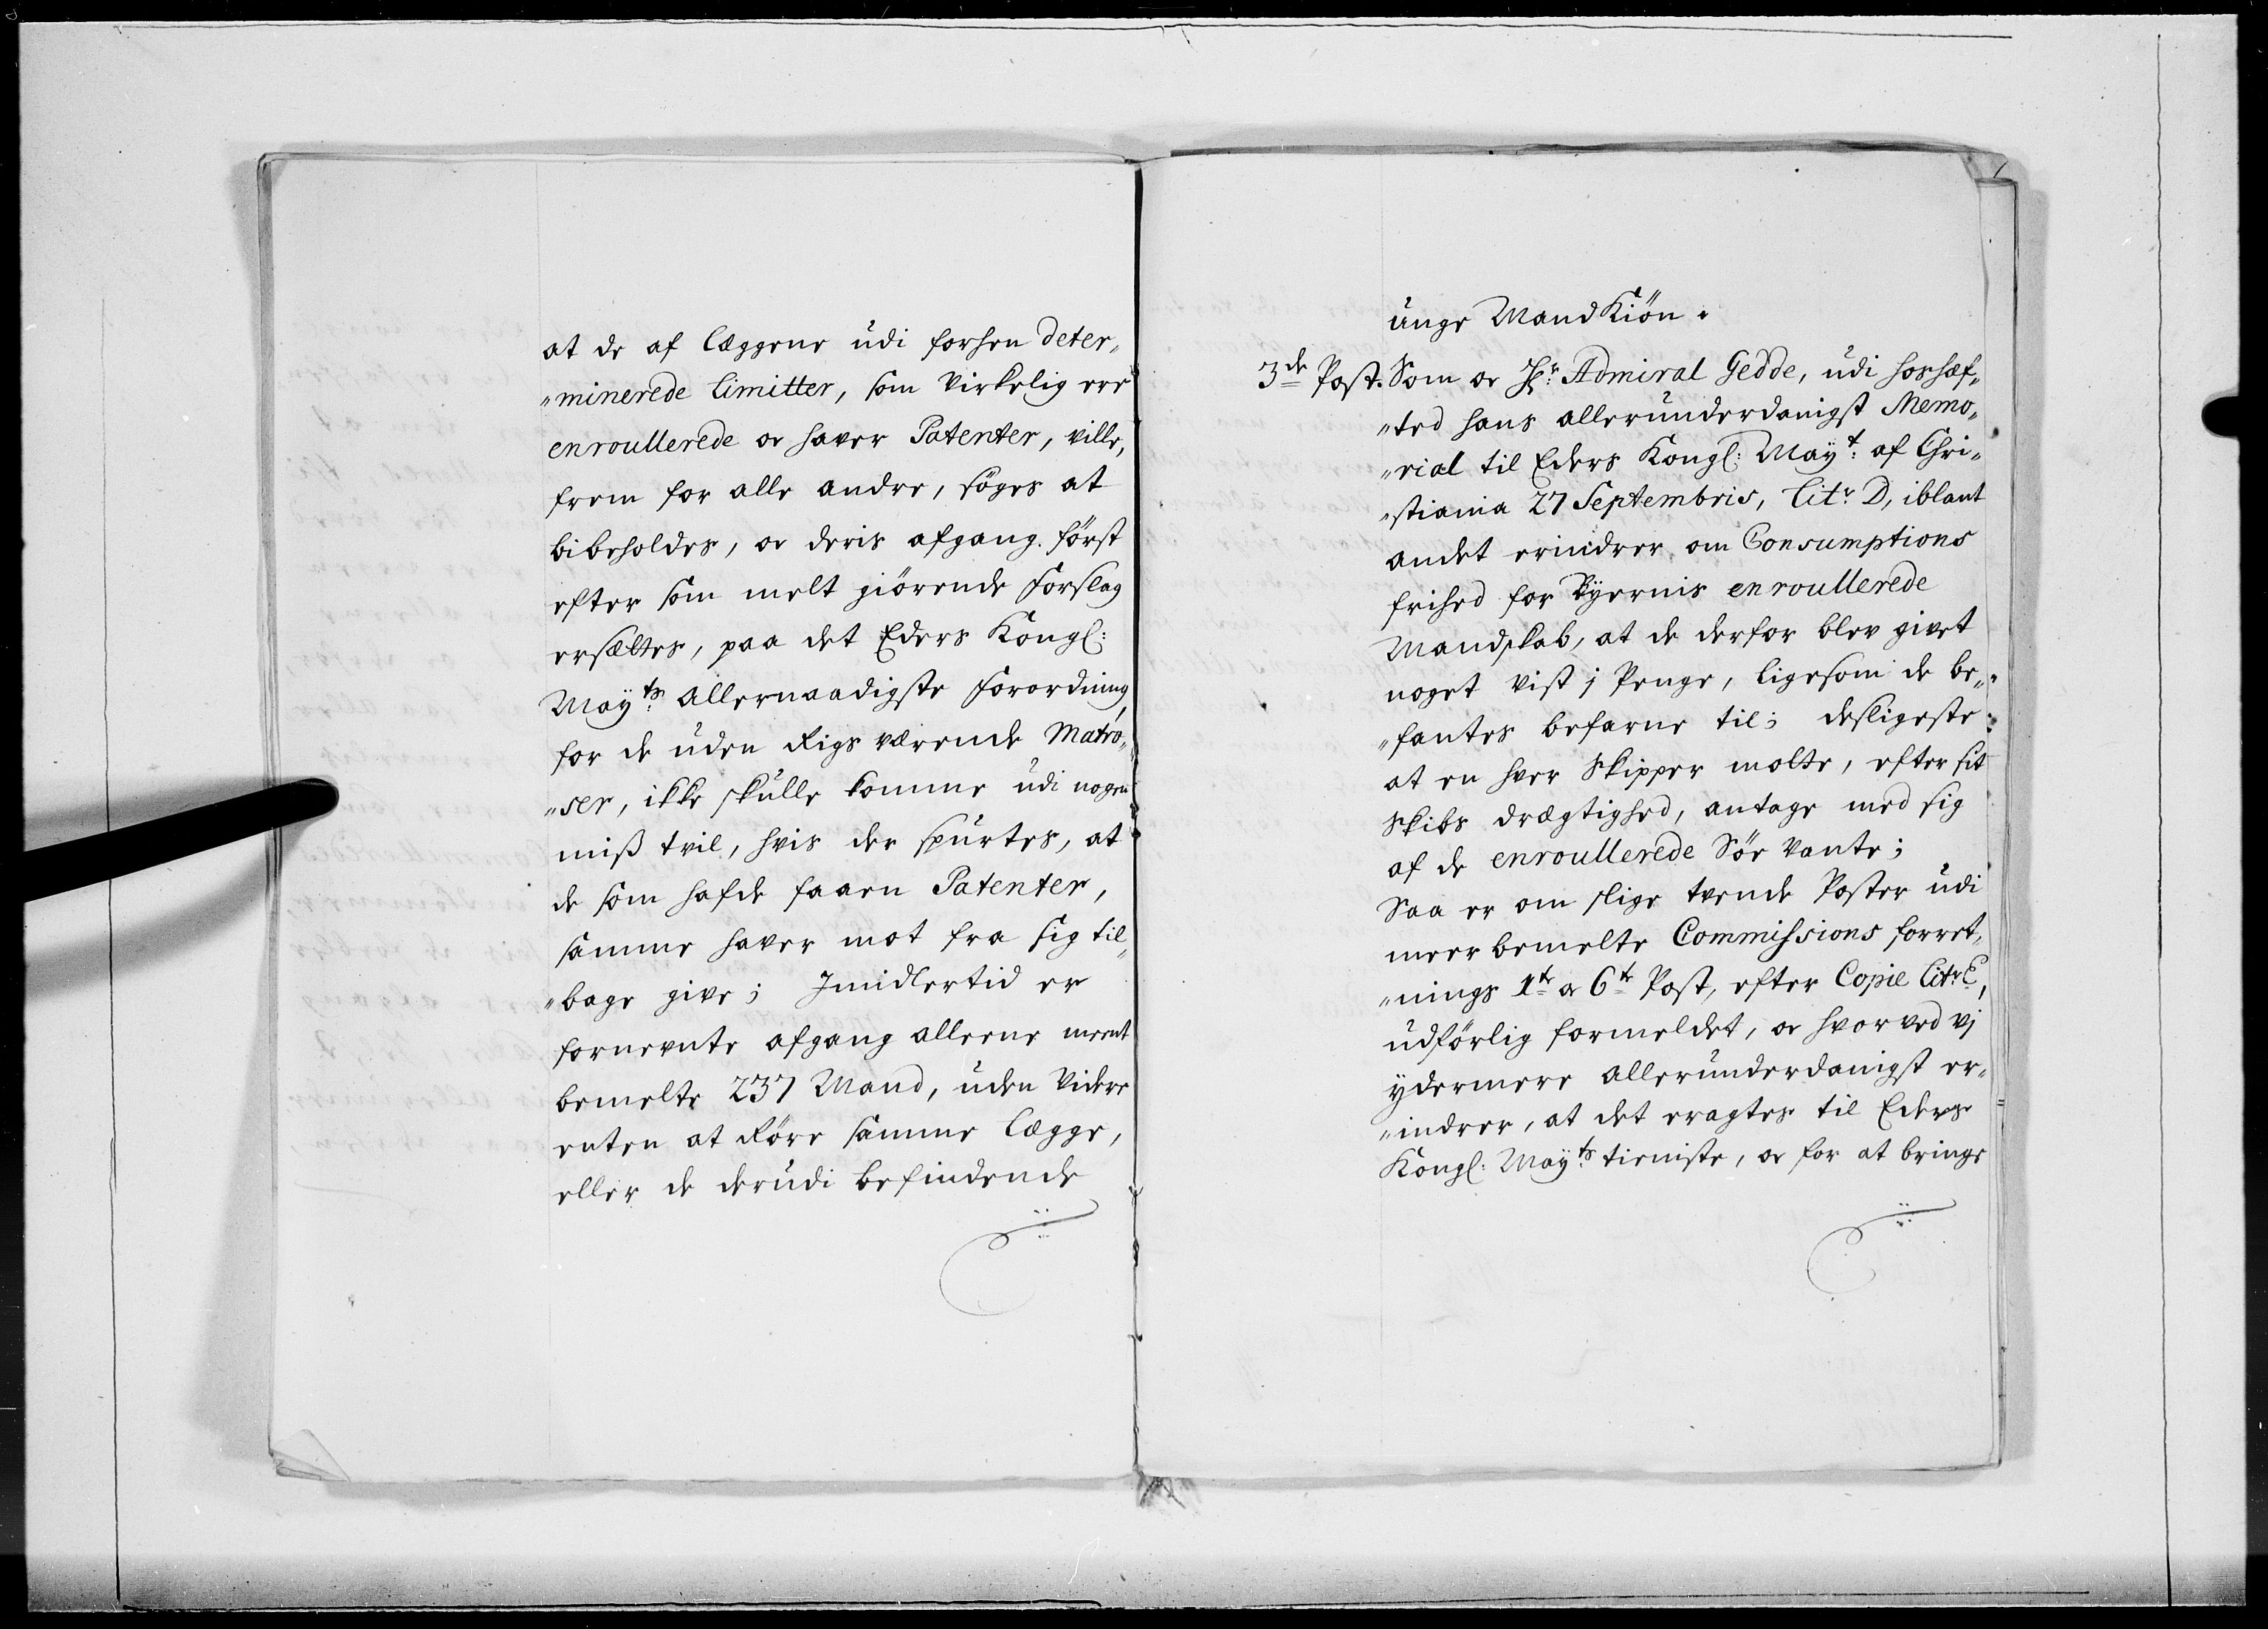 at de af læggene udi forhen deter„
„minerede limitter, som virkelig ere
enroullerede oc haver Patenter, ville,
frem for alle andre, söges at
bibeholdes, oc deris afgang först
efter som melt giörende forslag
ersættes, paa det Eders Kongl:
Mayts: allernaadigste forordning,
for de uden Rigs værende Matro„
„ser, ikke skulle komme udi nogen
miß tvil, hvis der spurtes, at
de som hafde faaen Patenter,
samme haver mot fra sig til„
„bage give; Imidlertid er
fornevnte afgang alleene meent
bemelte 237 Mand, uden videre
enten at Röre samme lægge,
eller de derudi befindende
unge Mand Kiön.
3de Post. Som oc Hr: Admiral Gedde, udi hoshæf„
„ted hans allerunderdanigst Memo„
„rial til Eders Kongl: Mayt: af Chri„
„stiania 27 Septembris, Litr: D, iblant
andet erindrer om Consumptions
frihed for Byernis enroullerede
Mandskab, at de derfor blev givet
noget vist j Penge, ligesom de be„
„fantes befarne til; desligeste
at en hver Skipper motte, efter sit
Skibs drægtighed, antage med sig
af de enroullerede Söe vante;
Saa er om slige tvende Poster udi
meer bemelte Commissions forret„
„nings 1te oc 6te Post, efter Copie Litr: C,
udförlig formeldet, oc hvorved vj
ydermere allerunderdanigst er„
„indrer, at det eragtes til Eders
Kongl: Mayts: tieniste, oc for at bringe